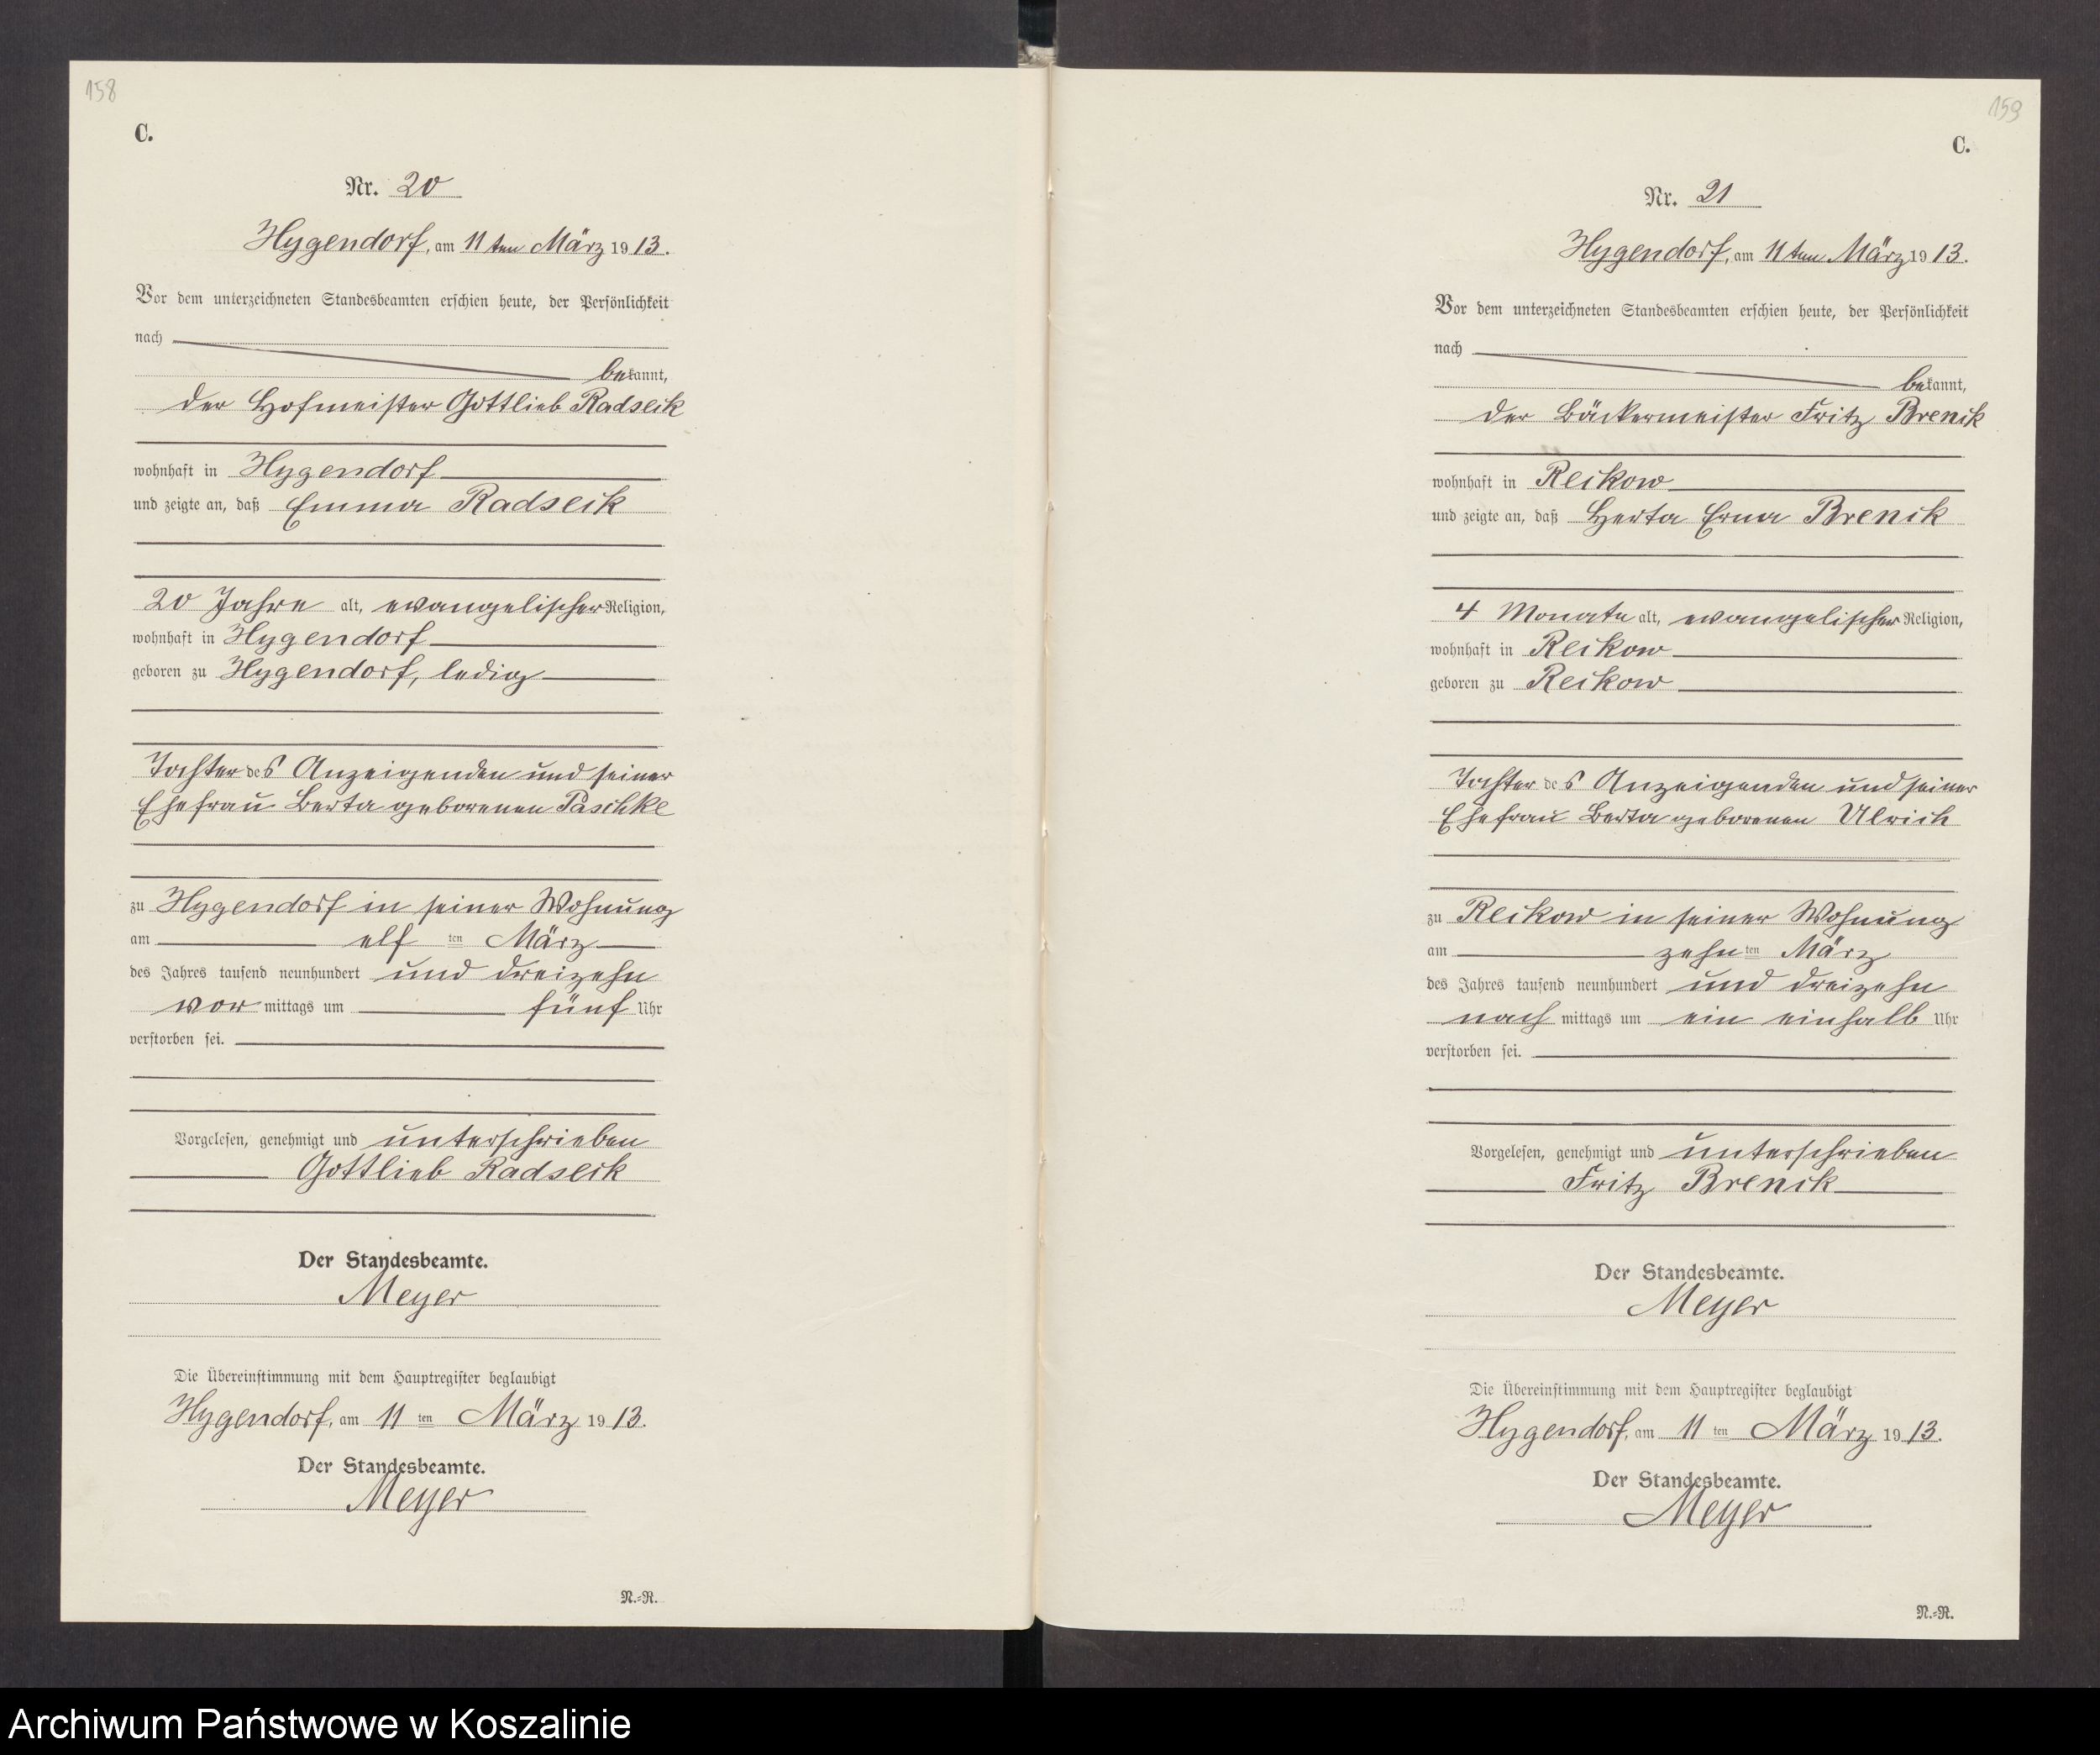 158
C.
Nr. 20
Hygendorf, am 11ten März 1913.
Vor dem unterzeichneten Standesbeamten erschien heute, der Persönlichkeit
nach
bekannt,
der Hofmeister Gottlieb Radseik
wohnhaft in Hygendorf
und zeigte an, daß Emma Radseik
20 Jahre alt, evangelischer Religion,
wohnhaft in Hygendorf
geboren zu Hygendorf, ledig
Tochter des Anzeigenden und seiner
Ehefrau Berta geborenen Paschke
zu Hygendorf in seiner Wohnung
am elf ten März
des Jahres tausend neunhundert und dreizehn
vor mittags um fünf Uhr
verstorben sei.
Vorgelesen, genehmigt und unterschrieben
Gottlieb Radseik
Der Standesbeamte.
Meyer
Die Übereinstimmung mit dem Hauptregister beglaubigt
Hygendorf, am 11 ten März 1913.
Der Standesbeamte.
Meyer
N.=R.
159
C.
Nr. 21
Hygendorf, am 11ten März 1913.
Vor dem unterzeichneten Standesbeamten erschien heute, der Persönlichkeit
nach
bekannt,
der Bäckermeister Fritz Brenik
wohnhaft in Reikow
und zeigte an, daß Herta Erna Brenik
4 Monate alt, evangelischer Religion,
wohnhaft in Reikow
geboren zu Reikow
Tochter des Anzeigenden und seiner
Ehefrau Berta geborenen Ulrich
zu Reikow in seiner Wohnung
am zehn ten März
des Jahres tausend neunhundert und dreizehn
nach mittags um ein einhalb Uhr
verstorben sei.
Vorgelesen, genehmigt und unterschrieben
Fritz Brenik
Der Standesbeamte.
Meyer
Die Übereinstimmung mit dem Hauptregister beglaubigt
Hygendorf, am 11 ten März 1913.
Der Standesbeamte.
Meyer
N.=R.
Archiwum Państwowe w Koszalinie